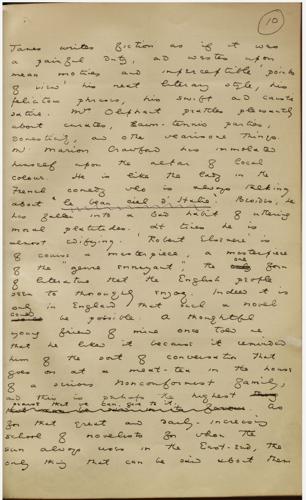 10
James writes fiction as if it was
a painful duty, and wastes upon
mean motives and imperceptible 'points
of view' his neat literary style, his
felicitous phrases, his swift and caustic
satire. Mrs Oliphant prattles pleasantly
about curates, lawn-tennis parties,
domesticity, and other wearisome things.
Mr Marion Crawford has immolated
himself upon the altar of local
colour. He is like the lady in the
French comedy who is always talking
about "le beau ciel d'Italie". Besides, he
has fallen into a bad habit of uttering
moral platitudes. At times he is
almost edifying. Robert Elsmere is
of course a masterpiece, a masterpiece
of the "genre ennuyeux", the one form
of literature that the English people
seem to thoroughly enjoy. Indeed it is
only in England that such a novel
could be possible. A thoughtful
young friend of mine once told me
that he liked it because it reminded
him of the sort of conversation that
goes on at a meat-tea in the house
of a serious Nonconformist family,
and this is perhaps the highest
praise that we can give to it.
As
for that great and daily-increasing
school of novelists for whom the
sun always rises in the East-End, the
only thing that can be said about them